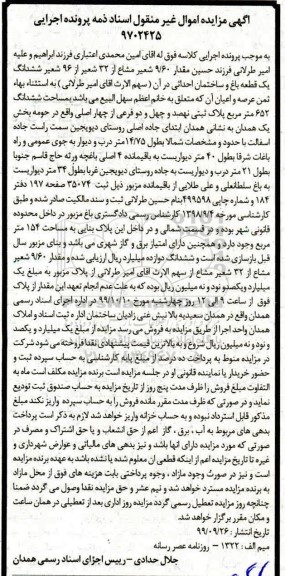 آگهی مزایده اموال غیر منقول اسناد ذمه پرونده اجرایی
۹۷۰۲۴۲۵
به موجب پرونده اجرایی کلاسه فوق له آقای امین محمدی اعتباری فرزند ابراهیم و علیه
امیر طرلانی فرزند حسین مقدار ۹/۶۰ شعیر مشاع از ۳۲ شعیر از ۹۶ شعیر ششدانگ
یک قطعه باغ و ساختمان احداثی در آن ( سهم الارث آقای امیر طرلانی ) به استثناء بهاء
ثمن عرصه و اعیان آن که متعلق به خانم اعظم سهل البیع می باشد بمساحت ششدانگ
۶۵۲ متر مربع پلاک ثبتی نهصد و چهل و دو فرعی از چهار اصلی واقع در حومه بخش
یک همدان به نشانی همدان ابتدای جاده اصلی روستای دیویجین سمت راست جاده
اسفالت با حدود و مشخصات شمالا بطول ۱۴/۷۵ متر درب و دیوار به جوی عمومی و راه
باغات شرقا بطول ۴۰ متر دیواریست به باقیمانده ۴ اصلی باغچه ورثه حاج قاسم جنوبا
بطول ۲۱ متر درب و دیواریست به جاده روستای دیویجین غربا بطول ۳۴ متر دیواریست
به باغ سلطانعلی و علی طلایی از باقیمانده مزبور ذیل ثبت ۳۵۰۷۴ صفحه ۱۹۷ دفتر
۱۸۴ و شماره چاپی ۴۹۹۵۹۸ بنام حسین طرلانی ثبت و سند مالکیت صادر شده و طبق
کارشناسی مورخه ۱۳۹۸/۹/۴ کارشناس رسمی دادگستری باغ مزبور در داخل محدوده
قانونی شهر بوده و در قسمت شمالی و در داخل این پلاک بنایی به مساحت ۱۵۴ متر
مربع وجود دارد و همچنین دارای امتیاز برق و گاز شهری می باشد و بنای مزبور سال
قبل بازسازی شده است و ششدانگ دوازده میلیارد ریال ارزیابی شده و مقدار ۹/۶۰ شعیر
مشاع از ۳۲ شعیر مشاع از سهم الارث آقای امیر طرلانی از پلاک مزبور به مبلغ یک
میلیارد و یکصد و نود و نه میلیون ریال بوده که به علت عدم انجام تعهد این مقدار از پلاک
فوق از ساعت ۹ الی ۱۲ روز چهارشنبه مورخ ۹۹/۱۰/۱۰ در اداره اجرای اسناد رسمی
همدان واقع در همدان سعیدیه بالا نبش غنی زادیان ساختمان اداره ثبت اسناد و املاک
همدان واحد اجرا از طریق مزایده به فروش می رسد مزایده از مبلغ یک میلیارد و یکصد
و نود و نه میلیون ریال شروع و به بالاترین قیمت پیشنهادی نقدا فروخته می شود شرکت
در مزایده منوط به پرداخت ده درصد از مبلغ پایه کارشناسی به حساب سپرده ثبت و
حضور خریدار یا نماینده قانونی او در جلسه مزایده است برنده مزایده مکلف است ماه به
التفاوت مبلغ فروش را ظرف مدت پنج روز از تاریخ مزایده به حساب صندوق ثبت تودیع
نماید و در صورتی که ظرف مدت مقرر مانده فروش را به حساب سپرده واریز نکند مبلغ
مذکور قابل استرداد نبوده و به حساب خزانه واریز خواهد شد لازم به ذکر است پرداخت
بدهی های مربوط به آب ، برق ، گاز اعم از حق انشعاب و یا حق اشتراک و مصرف در
صورتی که مورد مزایده دارای آنها باشد و نیز بدهی های مالیاتی و عوارض شهرداری و
غیره تا تاریخ مزایده اعم از اینکه قطعی ان معلوم شده یا نشده باشد به عهده برنده مزایده
است و نیز در صورت وجود مازاد ، وجوه پرداختی بابت هزینه های فوق از محل مازاد
به برنده مزایده مسترد خواهد شد و نیم عشر و حق مزایده نقدا وصول می گردد ضمنا
چنانچه روز مزایده تعطیل رسمی گردد مزایده روز اداری بعد از تعطیلی در همان ساعت
و مکان مقرر برگزار خواهد شد.
تاریخ انتشار : ۹۹/۰۹/۲۶
میم الف: ۱۳۲۲ - روزنامه عصر رسانه
جلال حدادی – رییس اجرای اسناد رسمی همدان